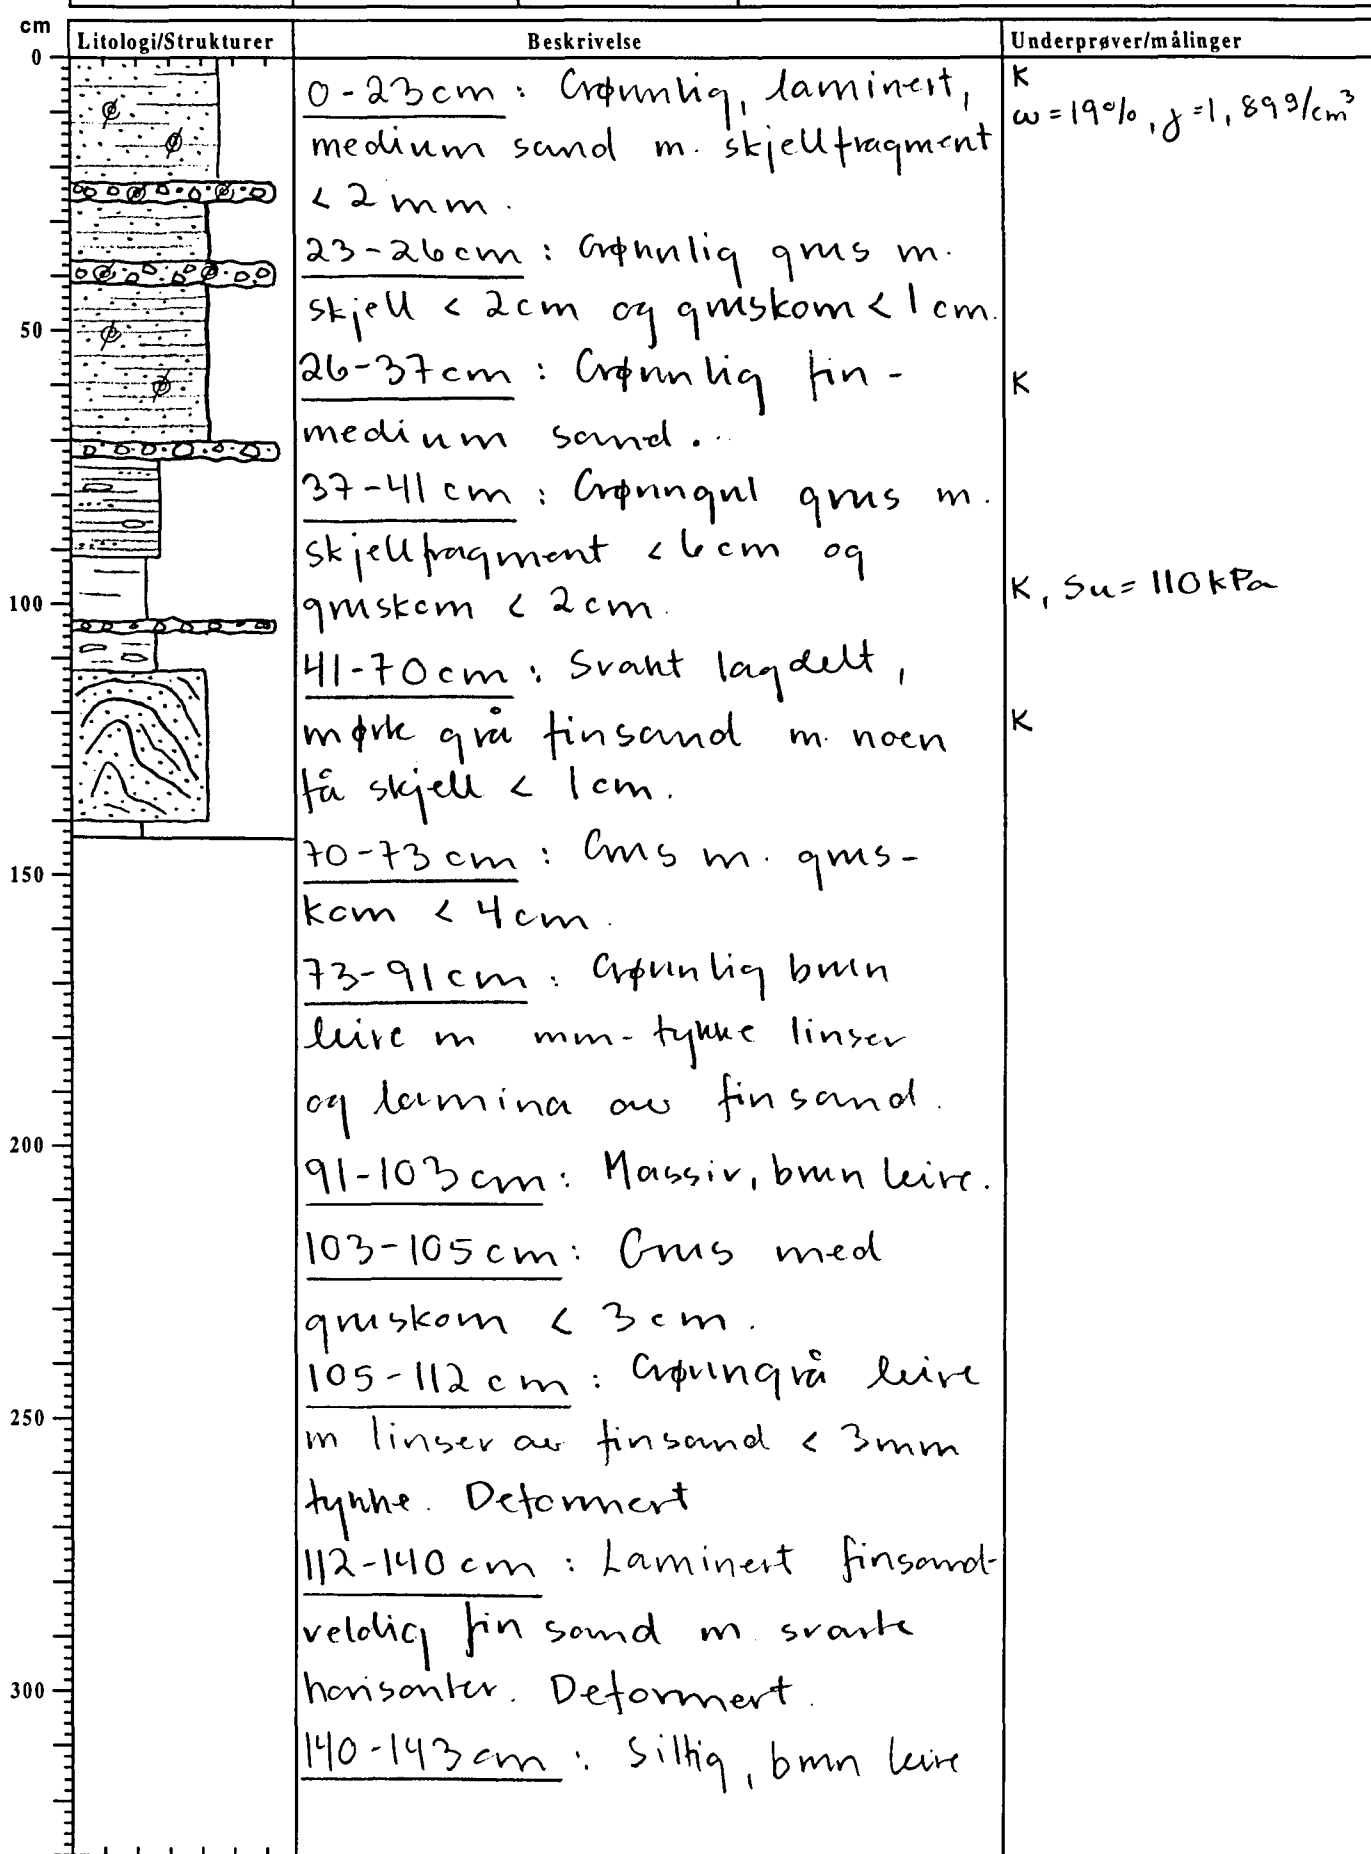 cm
Litologi/Strukturer
Beskrivelse
Underprøver/målinger
0
50
100
150
200
250
300
0-23cm: Grønnlig, laminert,
medium sand m. skjellfragment
< 2mm.
23-26cm: Grønnlig grus m.
skjell < 2cm og gruskorn < 1cm.
26-37cm: Grønnlig fin-
medium sand.
37-41cm: Grønngul grus m.
skjellfragment < 6cm og
gruskorn < 2cm.
41-70cm: Svakt lagdelt,
mørk grå finsand m. noen
få skjell < 1cm.
70-73cm: Grus m. grus-
korn < 4cm.
73-91cm: Grønnlig brun
leire m mm-tykke linser
og lamina av finsand.
91-103cm: Massiv, brun leire.
103-105cm: Grus med
gruskorn < 3cm.
105-112cm: Grønngrå leire
m linser av finsand < 3mm
tykke. Deformert
112-140cm: Laminert finsand-
veldig fin sand m svarte
horisonter. Deformert.
140-143cm: Siltig, brun leire
K
ω=19%, γ=1,89g/cm³
K
K, Su=110kPa
K